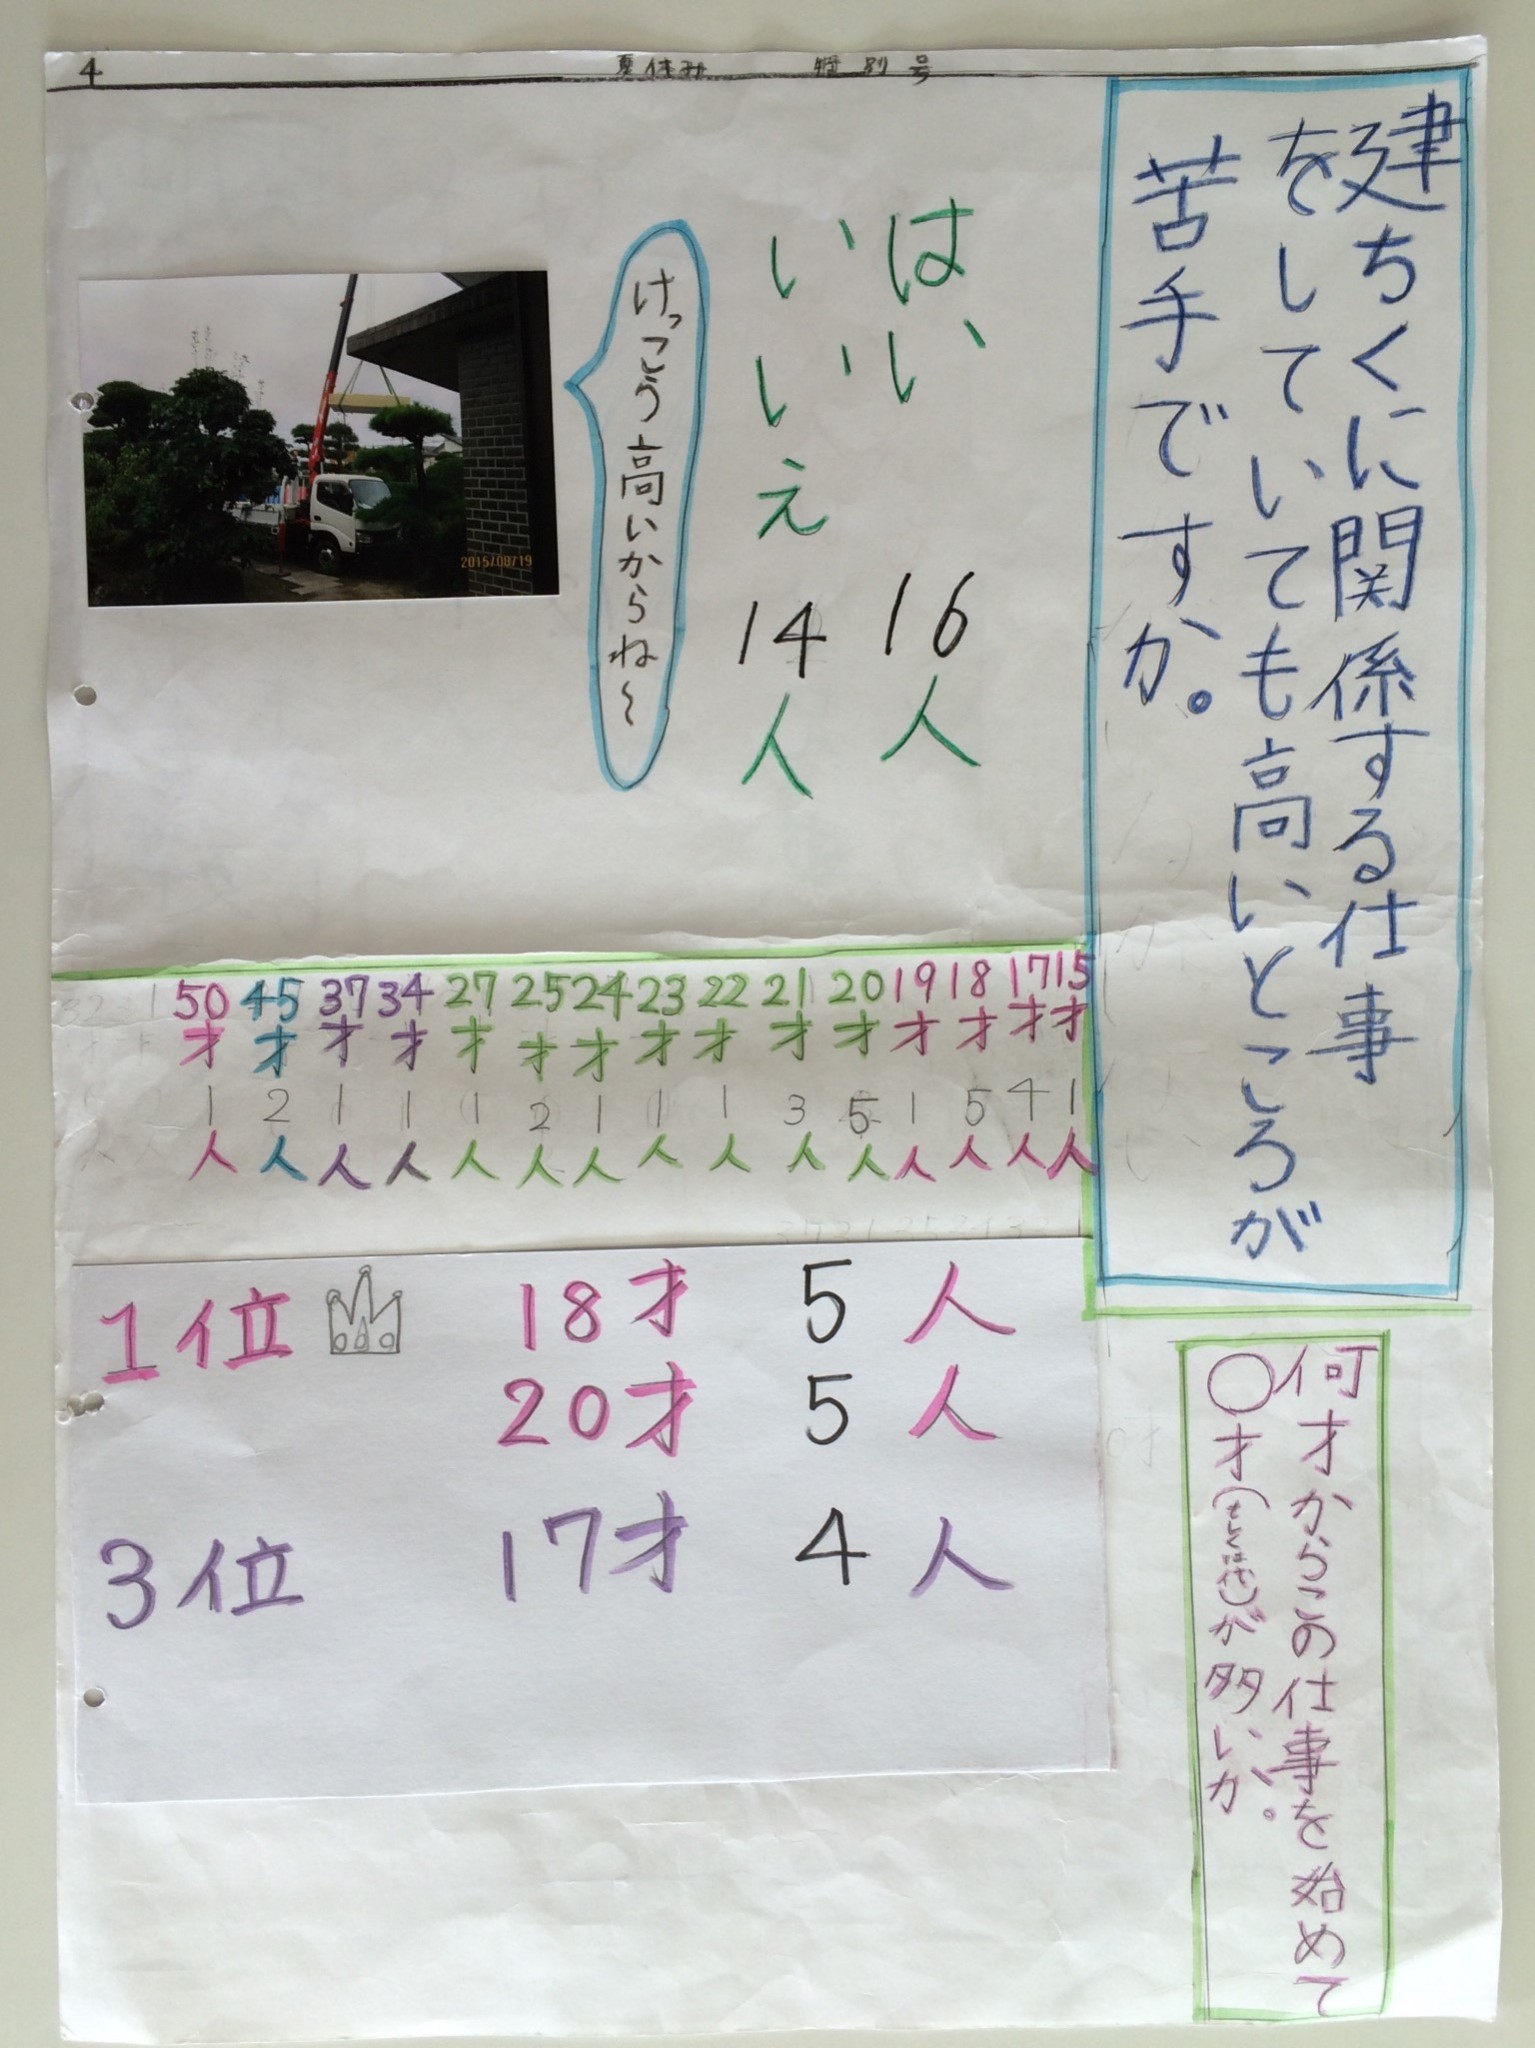 4
夏休み 特別号
建ちくに関係する仕事
をしていても高いところが
苦手ですか。
はい 16人
いいえ 14人
けっこう高いからね〜
2015/08/19
何才からこの仕事を始めて
〇才(もしくは代)が多いか。
15才 1人
17才 4人
18才 5人
19才 1人
20才 5人
21才 3人
22才 1人
23才 1人
24才 1人
25才 2人
27才 1人
34才 1人
37才 1人
45才 2人
50才 1人
1位 18才 5人
20才 5人
3位 17才 4人